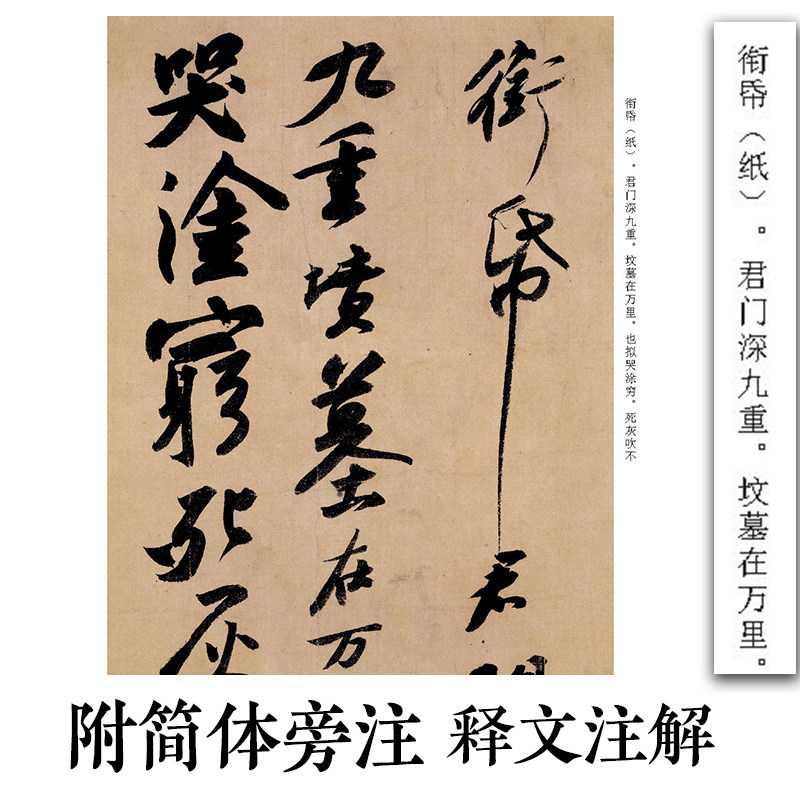 銜帋君
九重墳墓在万
哭塗窮死灰
衔帋（纸）。君门深九重。坟墓在万里。也拟哭涂穷。死灰吹不
衔帋（纸）。君门深九重。坟墓在万里。
附简体旁注 释文注解